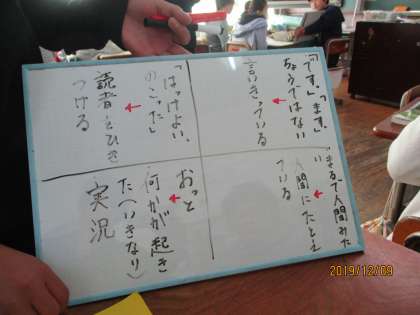 「です。」「ます。」
ちょうではない
←
言いきっている
「はっけよい、
のこった」
←
読者をひき
つける
まるで人間みた
い
←
人間にたとえ
ている
おっと
←
何かが起き
た(いきなり)
実況
2019/12/09